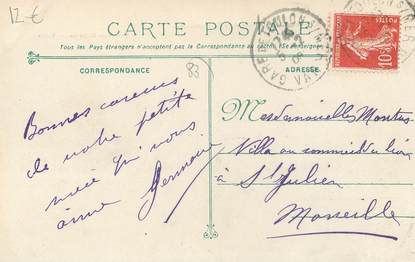 12€
CARTE POSTALE
Tous les Pays étrangers n'acceptent pas la Correspondance au recto. (Se renseigner).
CORRESPONDANCE
ADRESSE
83
Bonnes caresses
de notre petite
nièce qui vous
aime Germaine
Mesdemoiselles
Villa au sommet
à St Julien
Marseille
10c
GARE